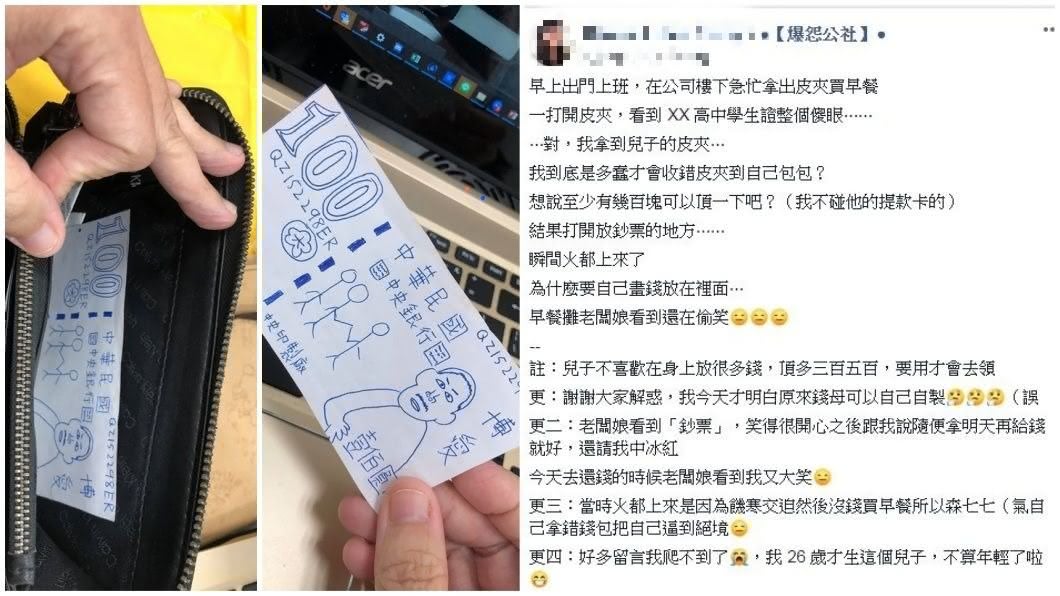 100
QZ152298ER
中華民國
國中央銀行國
QZ152298ER
博愛
acer
100
QZ152298ER
中華民國
國中央銀行國
QZ1522
中央印製廠
博愛
壹佰圓
【爆怨公社】
早上出門上班，在公司樓下急忙拿出皮夾買早餐
一打開皮夾，看到 XX 高中學生證整個傻眼⋯⋯
⋯對，我拿到兒子的皮夾⋯
我到底是多蠢才會收錯皮夾到自己包包？
想說至少有幾百塊可以頂一下吧？（我不碰他的提款卡的）
結果打開放鈔票的地方⋯⋯
瞬間火都上來了
為什麼要自己畫錢放在裡面⋯
早餐攤老闆娘看到還在偷笑😑😑😑
--
註：兒子不喜歡在身上放很多錢，頂多三百五百，要用才會去領
更：謝謝大家解惑，我今天才明白原來錢母可以自己自製🤧🤧🤧（誤
更二：老闆娘看到「鈔票」，笑得很開心之後跟我說隨便拿明天再給錢
就好，還請我中冰紅
今天去還錢的時候老闆娘看到我又大笑😑
更三：當時火都上來是因為饑寒交迫然後沒錢買早餐所以森七七（氣自
己拿錯錢包把自己逼到絕境😑
更四：好多留言我爬不到了😭，我 26 歲才生這個兒子，不算年輕了啦
😁